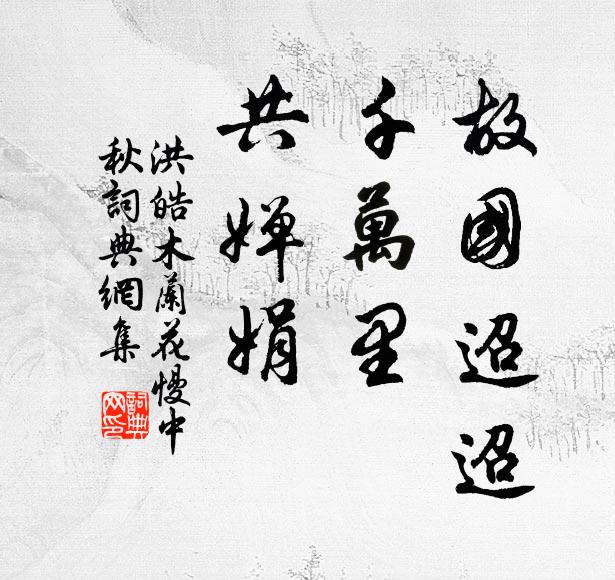 故國迢迢
千萬里
共嬋娟
洪皓木蘭花慢中
秋詞典網集
詞典
网印